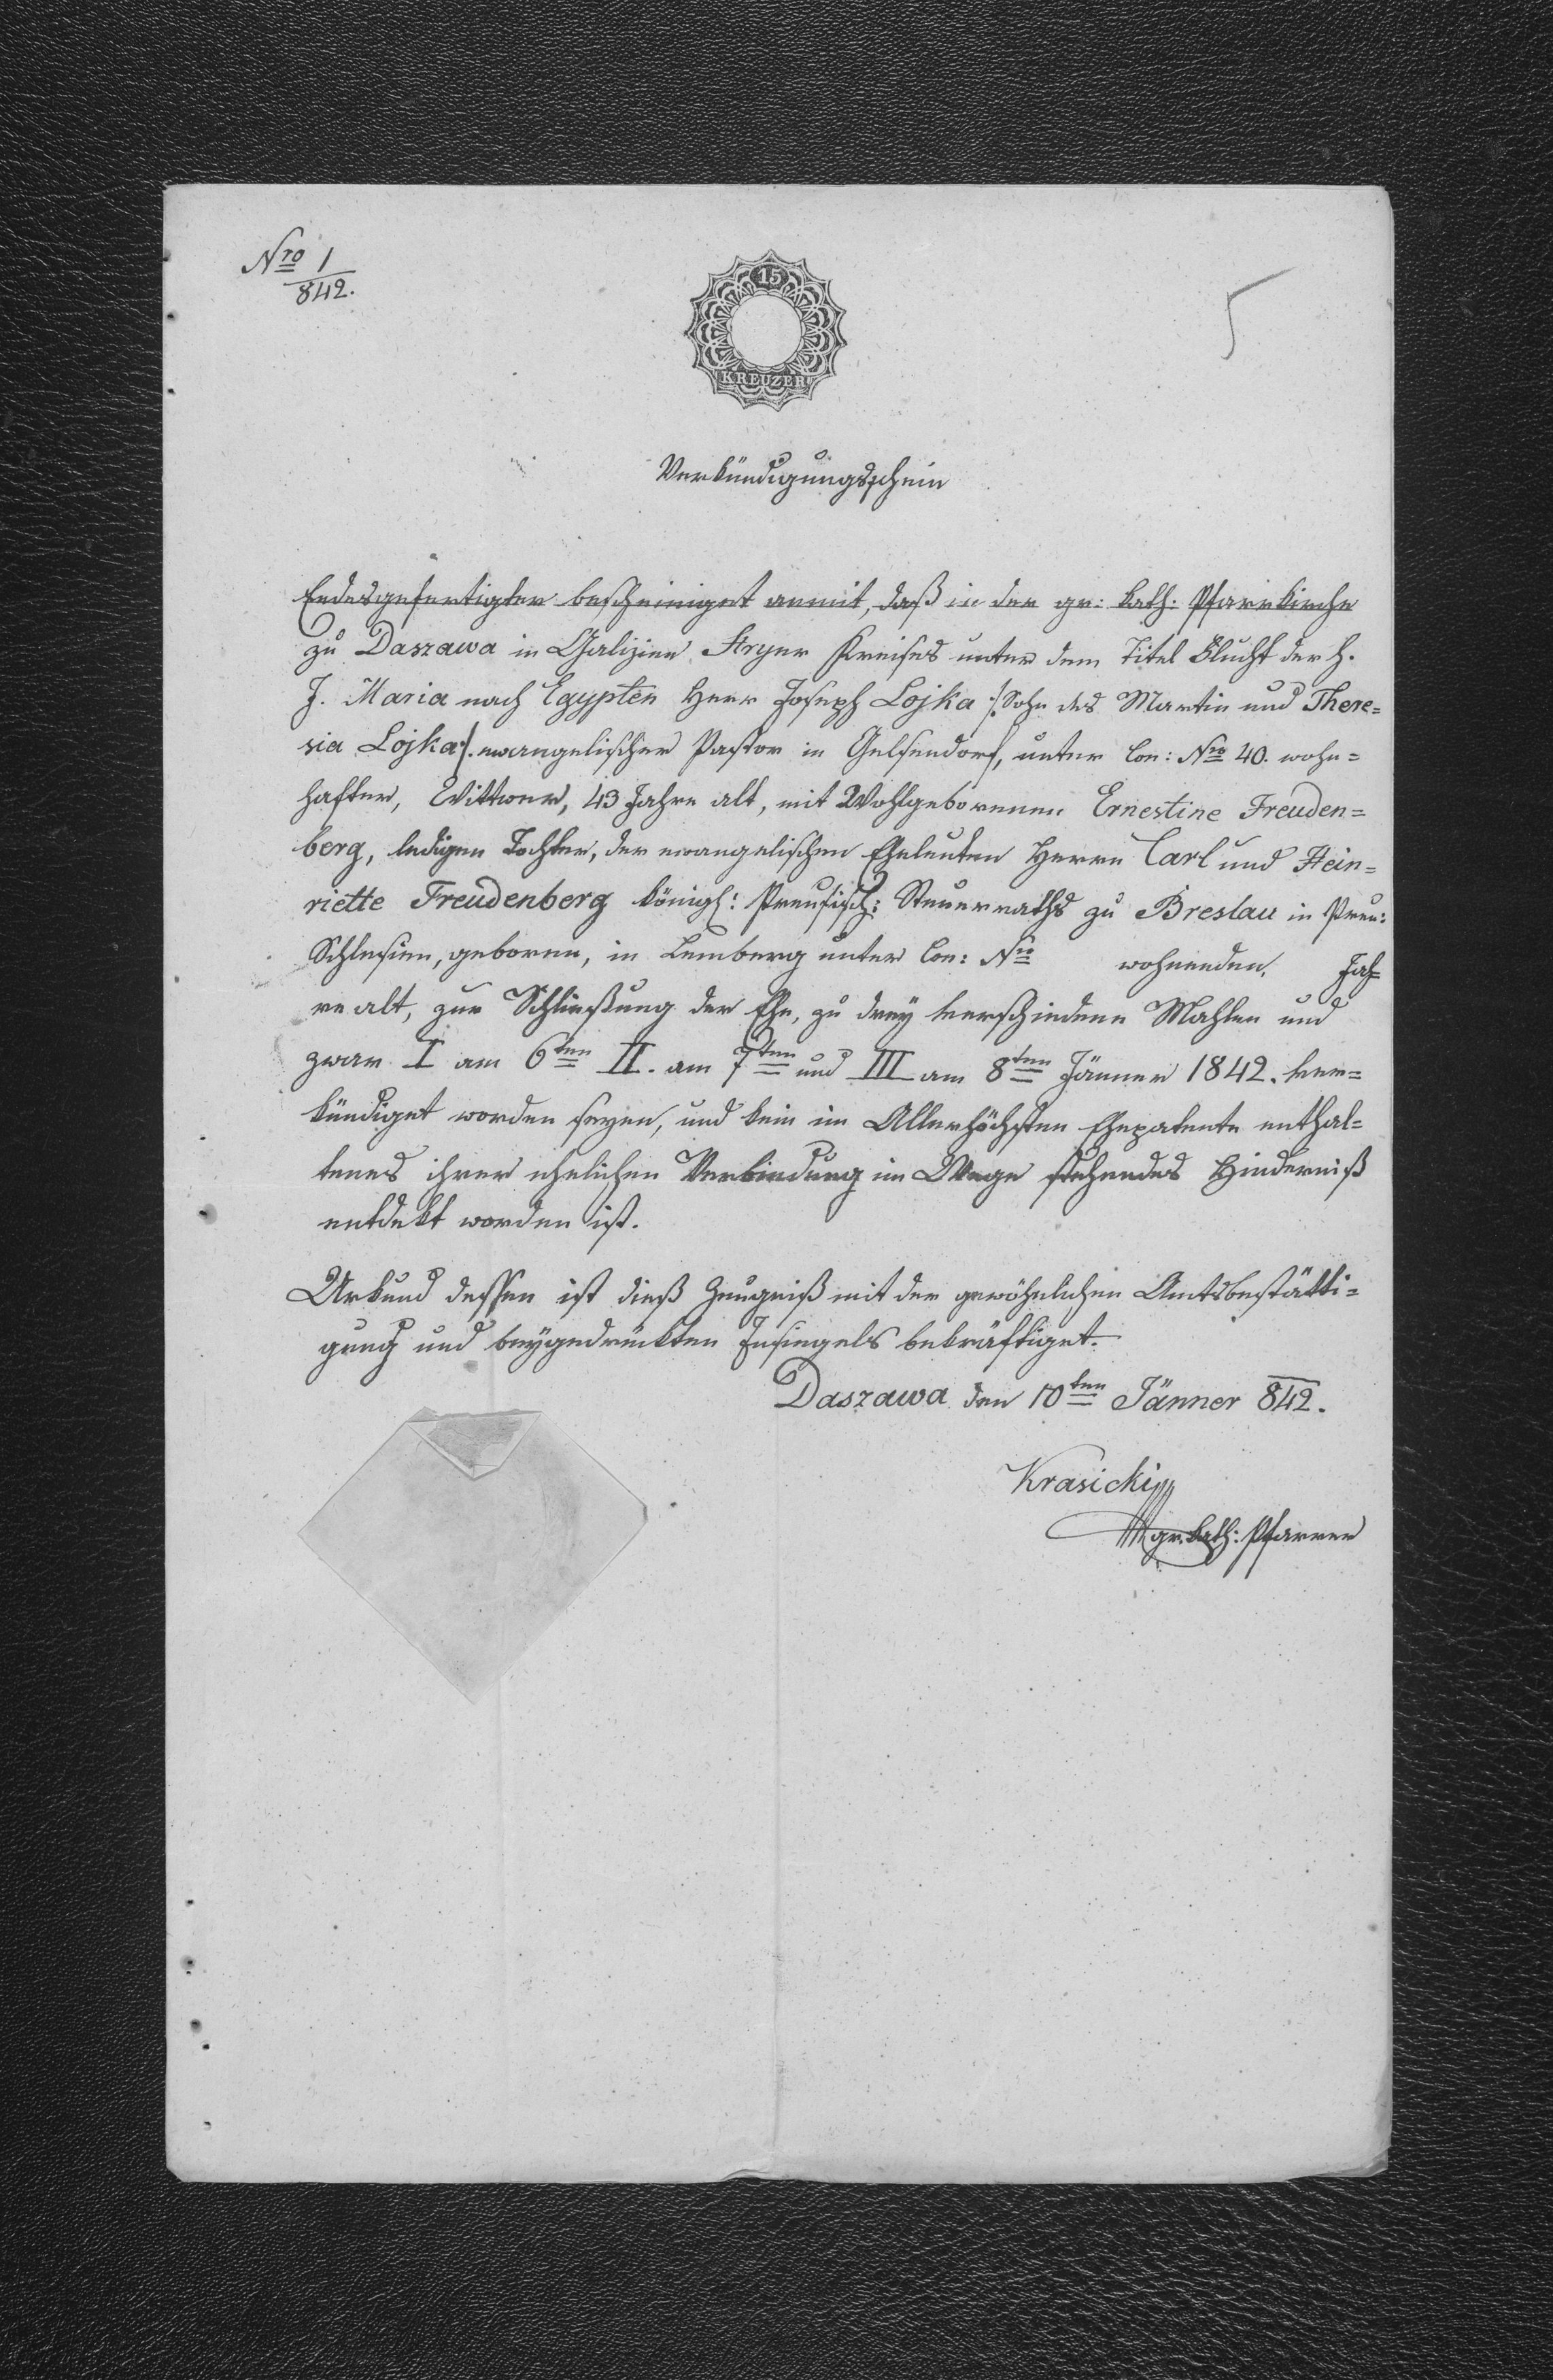 Nro 1
842.
5
15
KREUZER
Verkündigungsschein
Endesgefertigter bescheiniget anmit, daß in der gr: kath: Pfarrkirche
zu Daszawa in Galizien Stryer Kreises unter dem Titel Flucht der h.
J. Maria nach Egypten Herr Joseph Lojka /: Sohn des Martin und There=
sia Lojka :/ evangelischer Pastor in Gelsendorf, unter Con: Nro 40. wohn=
hafter, Wittwer, 43 Jahre alt, mit Wohlgeborenen Ernestine Freuden=
berg, ledigen Tochter, der evangelischen Eheleuten Herrn Carl und Hein=
riette Freudenberg königl: Preusisch: Steuerraths zu Breslau in Preu:
Schlesien, geboren, in Lemberg unter Con: Nro wohnenden, Jah=
re alt, zur Schließung der Ehe, zu drey verschiedene Mahlen und
zwar I am 6ten II. am 7ten und III am 8ten Jänner 1842. ver=
kündiget worden seyen, und kein im Allerhöchsten Ehepatente enthal=
tenes ihrer ehelichen Verbindung im Wege stehendes Hinderniß
entdekt worden ist.
Urkund dessen ist dieß Zeugniß mit der gewöhnlichen Amtsbestätti=
gung und beygedrückten Insiegels bekräftiget.
Daszawa den 10ten Jänner 842.
Krasicki
gr. kath: Pfarrer